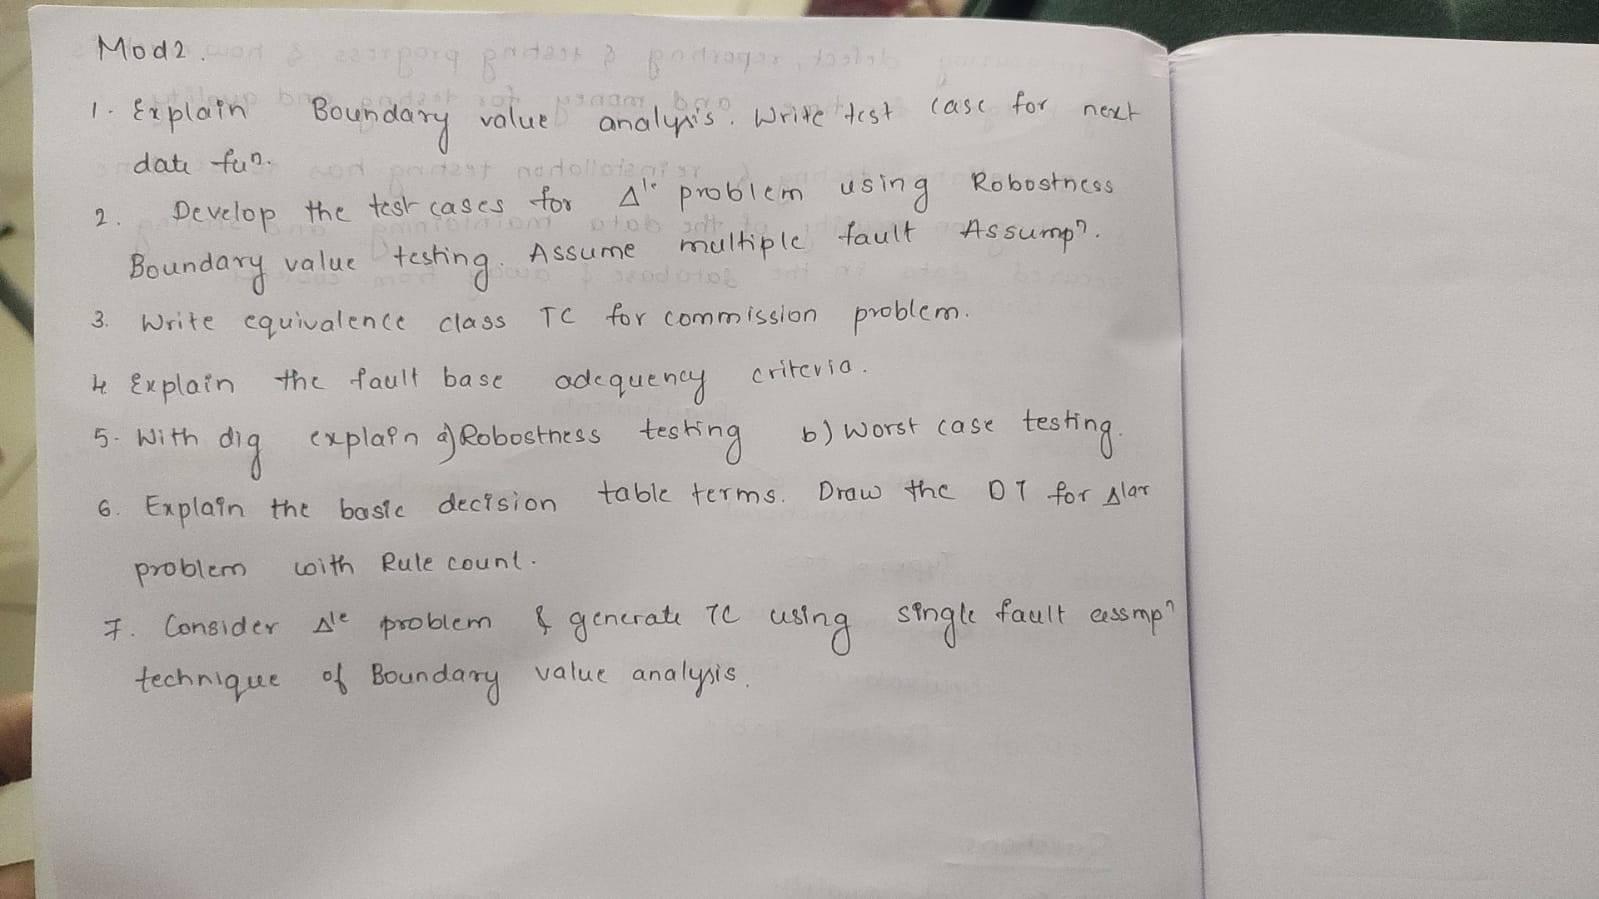 Mod2.
1. Explain Boundary value analysis. Write test case for next
date fun.
2. Develop the test cases for Δle problem using Robostness
Boundary value testing. Assume multiple fault Assumpn.
3. Write equivalence class TC for commission problem.
4 Explain the fault base adequency criteria.
5. With dig explain a) Robostness testing b) Worst case testing.
6. Explain the basic decision table terms. Draw the DT for Δlar
problem with Rule count.
7. Consider Δle problem & generate TC using single fault assmpn
technique of Boundary value analysis.